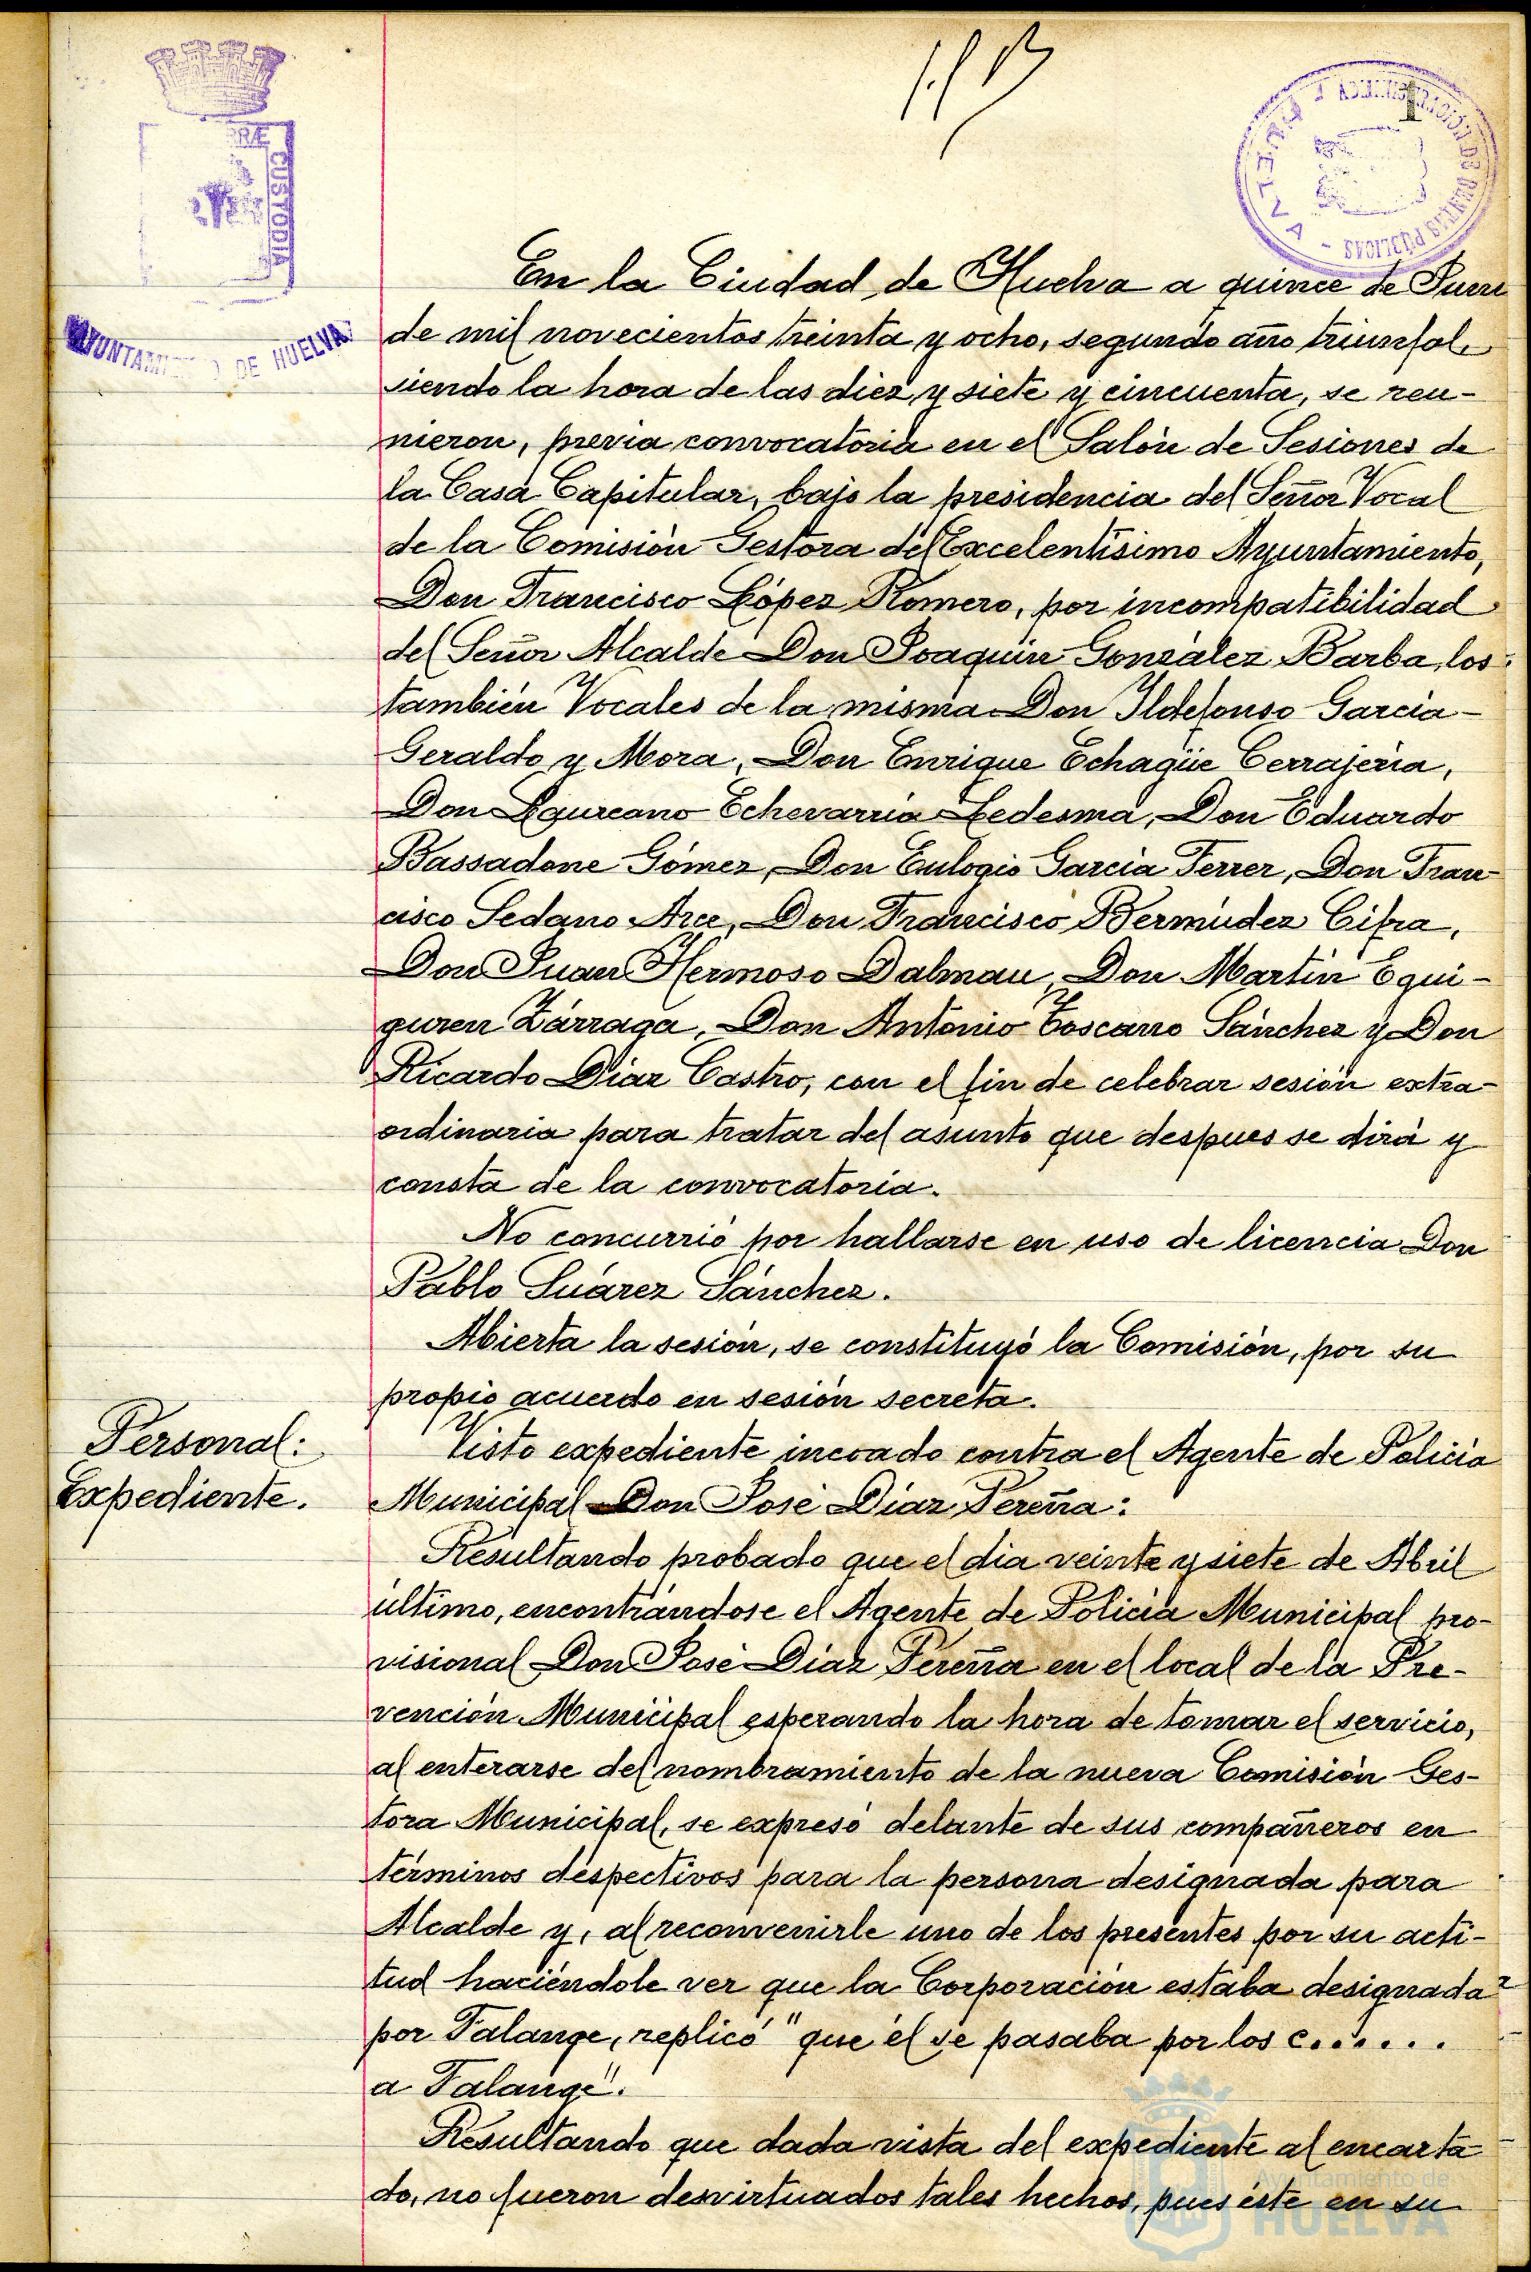 1
RÆ CUSTODIA
AYUNTAMI DE HUELVA
HUELVA
PÚBLICAS
En la Ciudad de Huelva a quince de Juni
de mil novecientos treinta y ocho, segundo año triunfal,
siendo la hora de las diez y siete y cincuenta, se reu-
nieron, previa convocatoria en el Salón de Sesiones de
la Casa Capitular, bajo la presidencia del Señor Vocal
de la Comisión Gestora del Excelentísimo Ayuntamiento,
Don Francisco López Romero, por incompatibilidad
del Señor Alcalde Don Joaquín González Barba, los
también Vocales de la misma Don Ildefonso García-
Geraldo y Mora, Don Enrique Echagüe Cerrajería,
Don Laureano Echevarría Ledesma, Don Eduardo
Bassadone Gómez, Don Eulogio García Ferrer, Don Fran-
cisco Sedano Arce, Don Francisco Bermúdez Cifra,
Don Juan Hermoso Dalmau, Don Martín Egui-
guren Zárraga, Don Antonio Toscano Sánchez y Don
Ricardo Díaz Castro, con el fin de celebrar sesión extra-
ordinaria para tratar del asunto que despues se dirá y
consta de la convocatoria.
No concurrió por hallarse en uso de licencia Don
Pablo Suárez Sánchez.
Abierta la sesión, se constituyó la Comisión, por su
propio acuerdo en sesión secreta.
Personal:
Expediente.
Visto expediente incoado contra el Agente de Policía
Municipal Don José Díaz Pereña:
Resultando probado que el dia veinte y siete de Abril
último, encontrándose el Agente de Policía Municipal pro-
visional Don José Díaz Pereña en el local de la Pre-
vención Municipal esperando la hora de tomar el servicio,
al enterarse del nombramiento de la nueva Comisión Ges-
tora Municipal, se expresó delante de sus compañeros en
términos despectivos para la persona designada para
Alcalde y, al reconvenirle uno de los presentes por su acti-
tud haciéndole ver que la Corporación estaba designada
por Falange, replicó "que él se pasaba por los c......
a Falange".
Resultando que dada vista del expediente al encarta-
do, no fueron desvirtuados tales hechos, pues éste en su
Ayuntamiento de
HUELVA